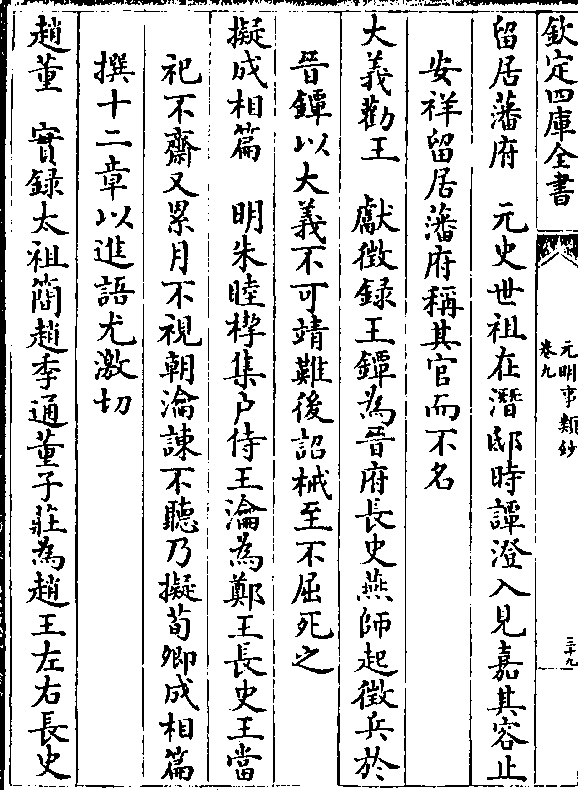 欽定四庫全書
元明事類鈔
卷九
三十九
留居藩府　元史世祖在潛邸時譚澄入見嘉其容止
安祥留居藩府稱其官而不名
大義勸王　獻徵錄王鐔為晉府長史燕師起徵兵於
晉鐔以大義不可靖難後詔械至不屈死之
擬成相篇　明朱睦㮮集户侍王瀹為鄭王長史王當
祀不齋又累月不視朝瀹諫不聽乃擬荀卿成相篇
撰十二章以進語尤激切
趙董　實録太祖簡趙季通董子莊為趙王左右長史